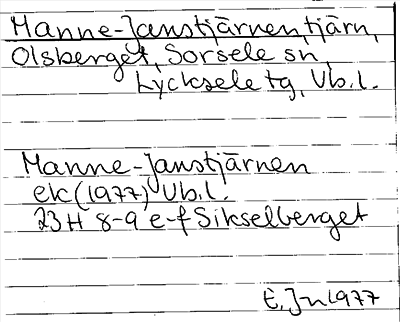 Manne-Janstjärnen, tjärn,
Olsberget, Sorsele sn,
Lycksele tg, Vb.l.
Manne-Janstjärnen
ek (1977) Vb.l.
23H 8-9 e-f Sikselberget
E. Jn 1977